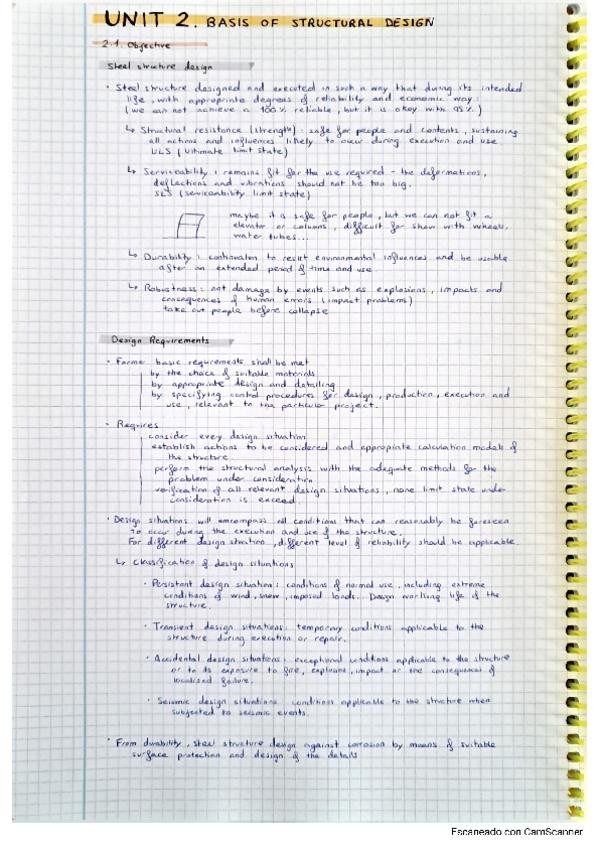 UNIT 2. BASIS OF STRUCTURAL DESIGN
2.1. Objective
Steel structure design
· Steel structure designed and executed in such a way that during its intended
life, with appropriate degrees of reliability and economic way:
(we can not achieve a 100% reliable, but it is okey with 95%)
↳ Structural resistance (strength): safe for people and contents, sustaining
all actions and influences likely to occur during execution and use
ULS (Ultimate limit state)
↳ Serviceability: remains fit for the use required - the deformations,
deflections and vibrations should not be too big.
SLS (serviceability limit state)
maybe it is safe for people, but we can not fit a
elevator or columns, difficult for show with wheels,
water tubes...
↳ Durability: to resist environmental influences and be usable
after an extended period of time and use
↳ Robustness: not damage by events such as explosions, impacts and
consequences of human errors (impact problems)
take out people before collapse
Design Requirements
· Former basic requirements shall be met
by the choice of suitable materials
by appropriate design and detailing
by specifying control procedures for design, production, execution and
use, relevant to the particular project.
· Requires
consider every design situation
establish actions to be considered and appropiate calculation models of
the structure
perform the structural analysis with the adequate methods for the
problem under consideration
verification of all relevant design situations, none limit state under
consideration is exceed.
· Design situations will encompass all conditions that can reasonably be foreseen
to occur during the execution and use of the structure.
For different design situation, different level of reliability should be applicable.
↳ Classification of design situations
· Persistant design situation: conditions of normal use, including extreme
conditions of wind, snow, imposed loads... Design working life of the
structure.
· Transient design situations: temporary conditions applicable to the
structure during execution or repair.
· Accidental design situations: exceptional conditions applicable to the structure
or to its exposure to fire, explosions, impact or the consequences of
localised failure.
· Seismic design situations conditions applicable to the structure when
subjected to seismic events.
· From durability, steel structure design against corrosion by means of suitable
surface protection and design of the details
Escaneado con CamScanner